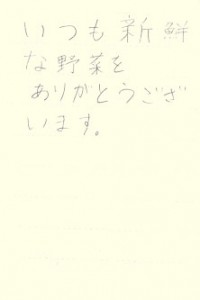 いつも新鮮
な野菜を
ありがとうござ
います。